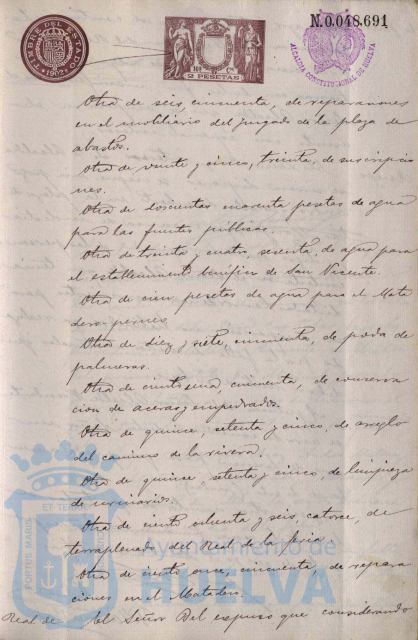 TIMBRE DEL ESTADO
1902
2 PESETAS
N.0.048.691
ALCALDIA CONSTITUCIONAL DE HUELVA
Otra de seis, cincuenta, de reparaciones
en el mobiliario del juzgado de la plaza de
abastos.
Otra de veinte y cinco, treinta, de suscripcio
nes.
Otra de doscientas cuarenta pesetas de agua
para las fuentes públicas.
Otra de treinta y cuatro, sesenta, de agua para
el establecimiento benéfico de San Vicente.
Otra de cien pesetas de agua para el Mata
dero
Otra de diez y siete, cincuenta, de poda de
palmeras.
Otra de cincuenta, de conserva
cion de aceras y empedrados.
Otra de quince, setenta y cinco, de arreglo
del camino de la rivera.
Otra de quince, setenta y cinco, de limpieza
de urinarios.
Otra de ciento ochenta y seis, catorce, de
terraplenado del Real de la feria.
Otra de ciento once, cincuenta, de repara
ciones en el Matadero.
Real de El Señor Bel expuso que considerando
PORTUS MARIS ET TERRAE
Ayuntamiento de
HUELVA